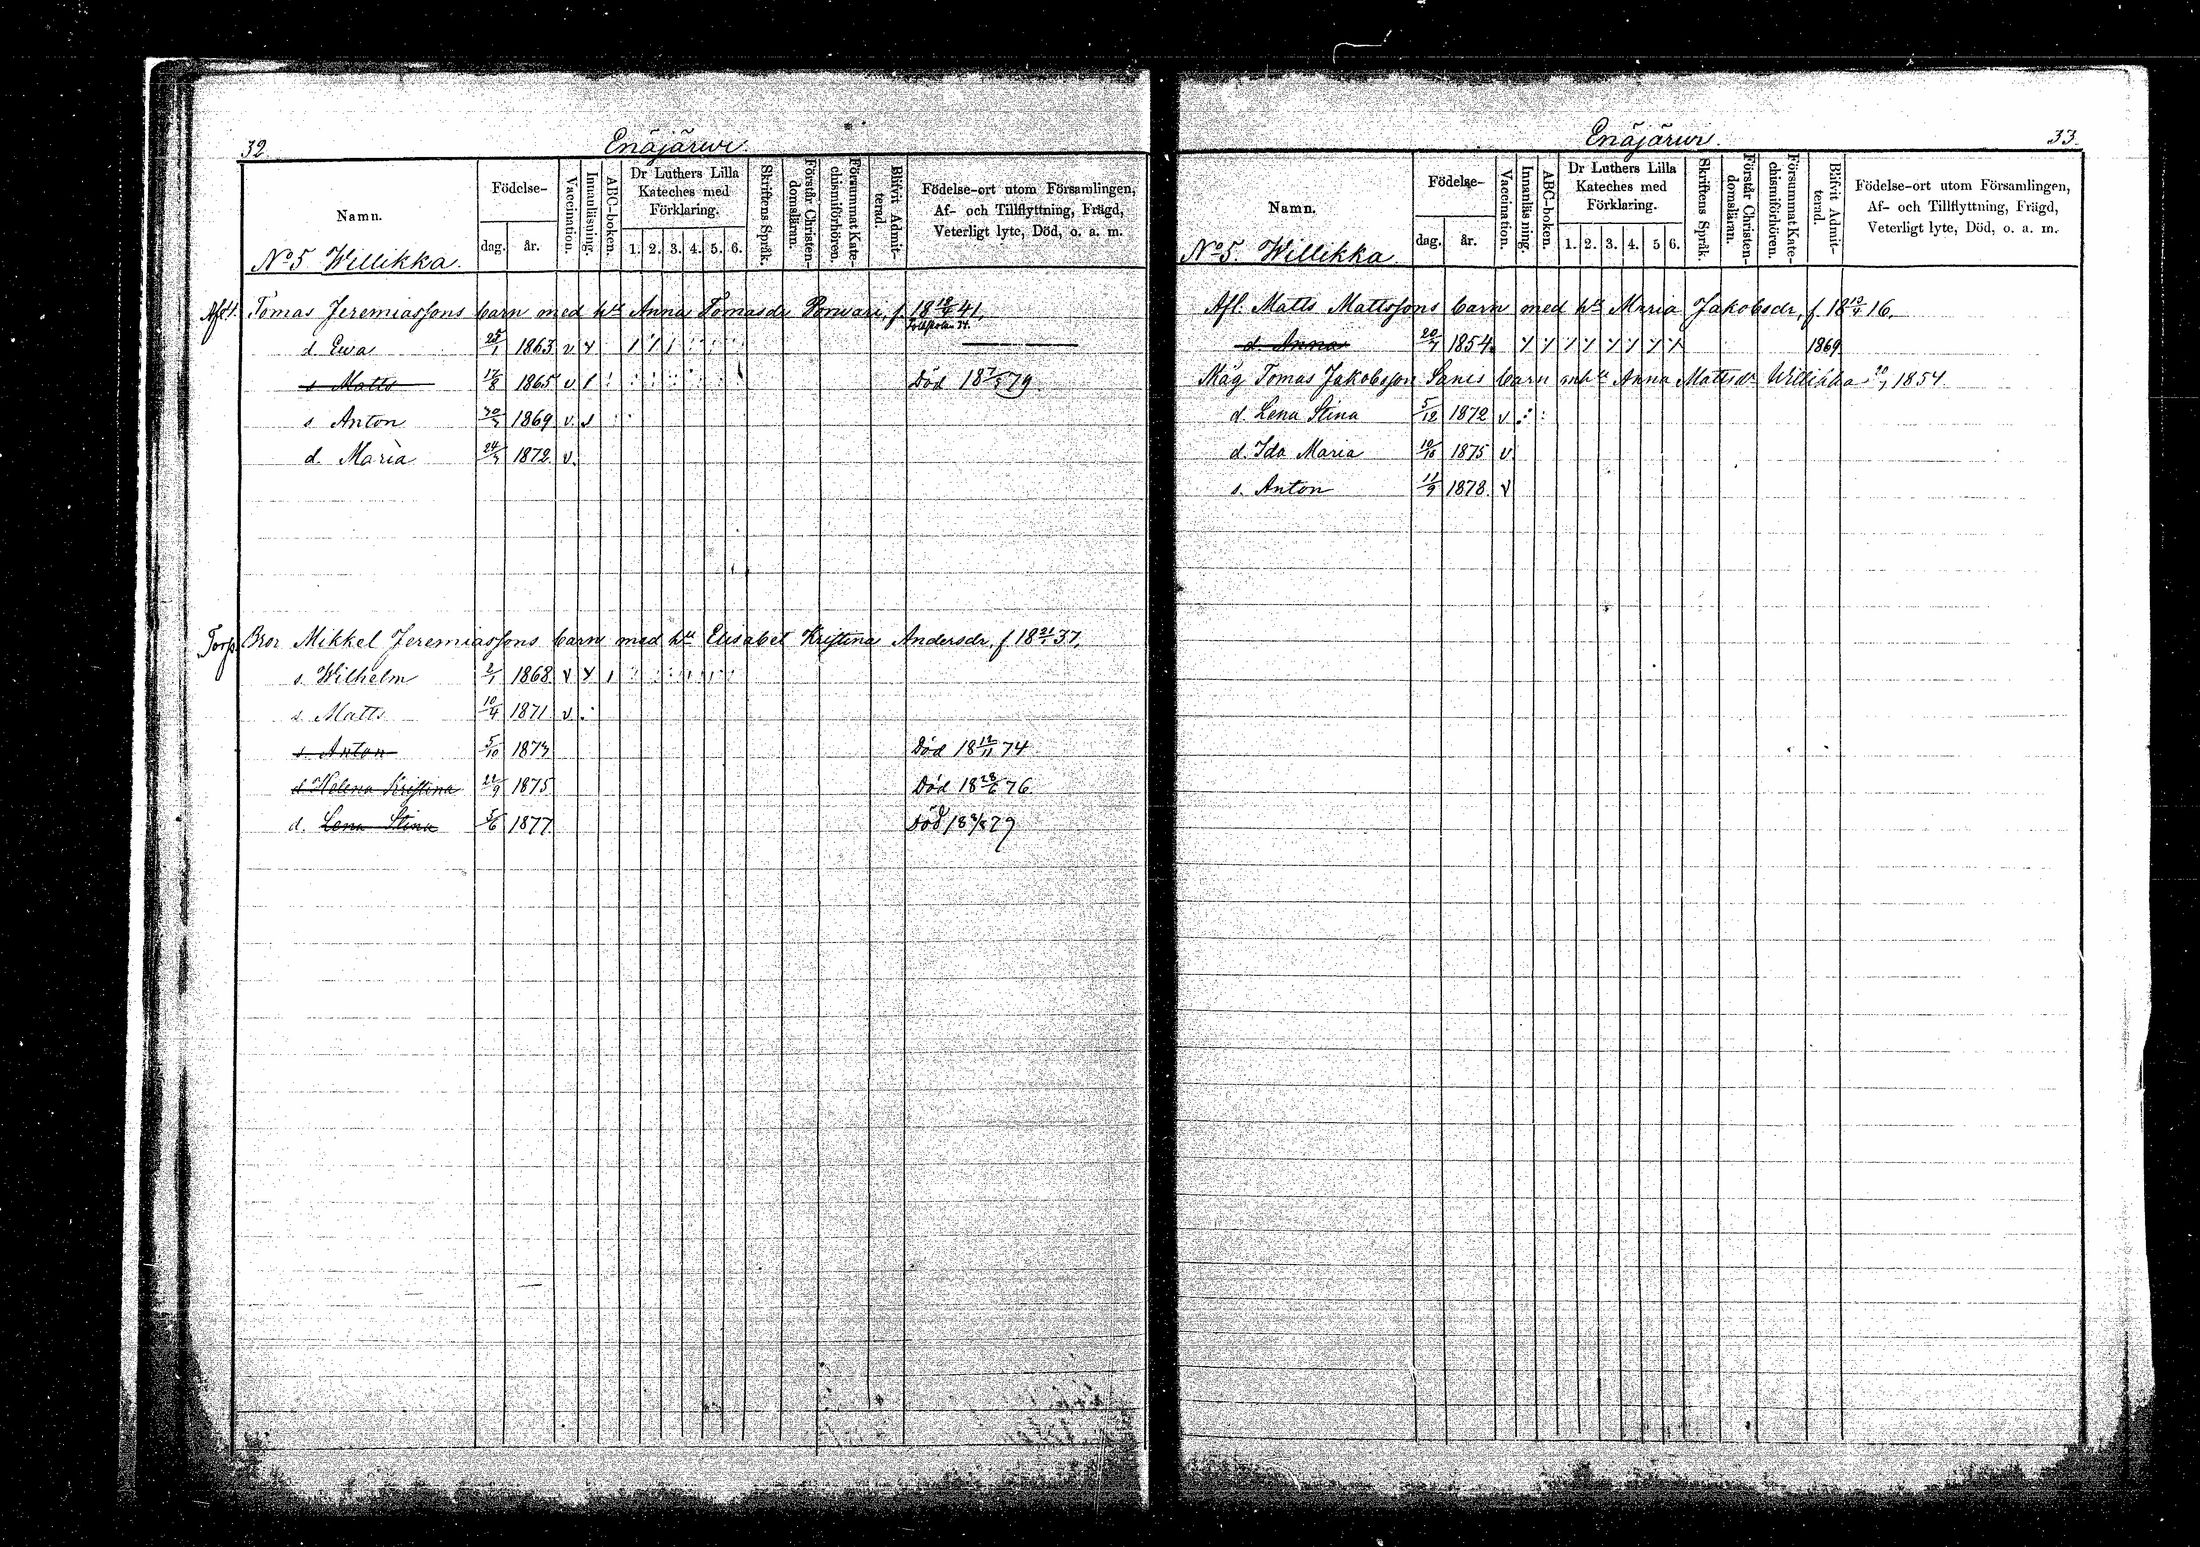 32.
Enäjärwi.
Namn.
Födelse-
dag.
år.
Vaccination.
Innanläsning.
ABC-boken.
Dr Luthers Lilla
Kateches med
Förklaring.
1. 2. 3. 4. 5. 6.
Skriftens Språk.
Förstår Christen-
domsläran.
Försummat Kate-
chismiförhören.
Blifvit Admit-
terad.
Födelse-ort utom Församlingen,
Af- och Tillflyttning, Frägd,
Veterligt lyte, Död, o. a. m.
No 5 Willikka.
Tomas Jeremiassons barn med hu Anna Tomasdr f. 41.
d. Ewa 25/1 1863 v
s Matts 17/8 1865 v Död 18 79
s Anton 1869 v.
d. Maria 1872. v.
Torp. Bror Mikkel Jeremiassons barn med hu Elisabet Kristina Andersdr, f 18 21/1 37,
s. Wilhelm 2/1 1868 v
s. Matts 10/4 1871 v
s. Anton 5/10 1873 Död 18 12/11 74
d Helena Kristina 1875 Död 18 28/6 76
d. Lena Stina 5/6 1877 Död 18 79
Enäjärwi.
33.
Namn.
Födelse-
dag.
år.
Vaccination.
Innanläsning.
ABC-boken.
Dr Luthers Lilla
Kateches med
Förklaring.
1. 2. 3. 4. 5 6.
Skriftens Språk.
Förstår Christen-
domsläran.
Försummat Kate-
chismiförhören.
Blifvit Admit-
terad.
Födelse-ort utom Församlingen,
Af- och Tillflyttning, Frägd,
Veterligt lyte, Död, o. a. m.
No 5. Willikka.
Afl. Matts Mattssons barn med hu Maria Jakobsdr, f 18 16.
d. Anna 20/7 1854. 1869
Måg Tomas Jakobsson barn m hu Anna Mattsdr Willikka 20/7 1854
d. Lena Stina 5/12 1872 v
d. Ida Maria 10/10 1875 v
s. Anton 11/9 1878. v